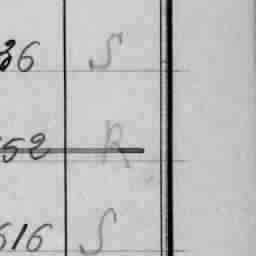 36 S
52 R
616 S